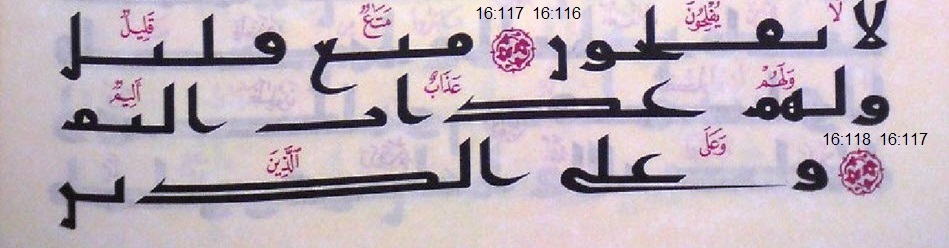 لَا يُفْلِحُونَ 16:116 16:117 مَتَٰعٌ قَلِيلٌ
لا يفلحون متع قليل
وَلَهُمْ عَذَابٌ أَلِيمٌ
ولهم عذاب اليم
16:117 16:118 وَعَلَى ٱلَّذِينَ
و على الذين